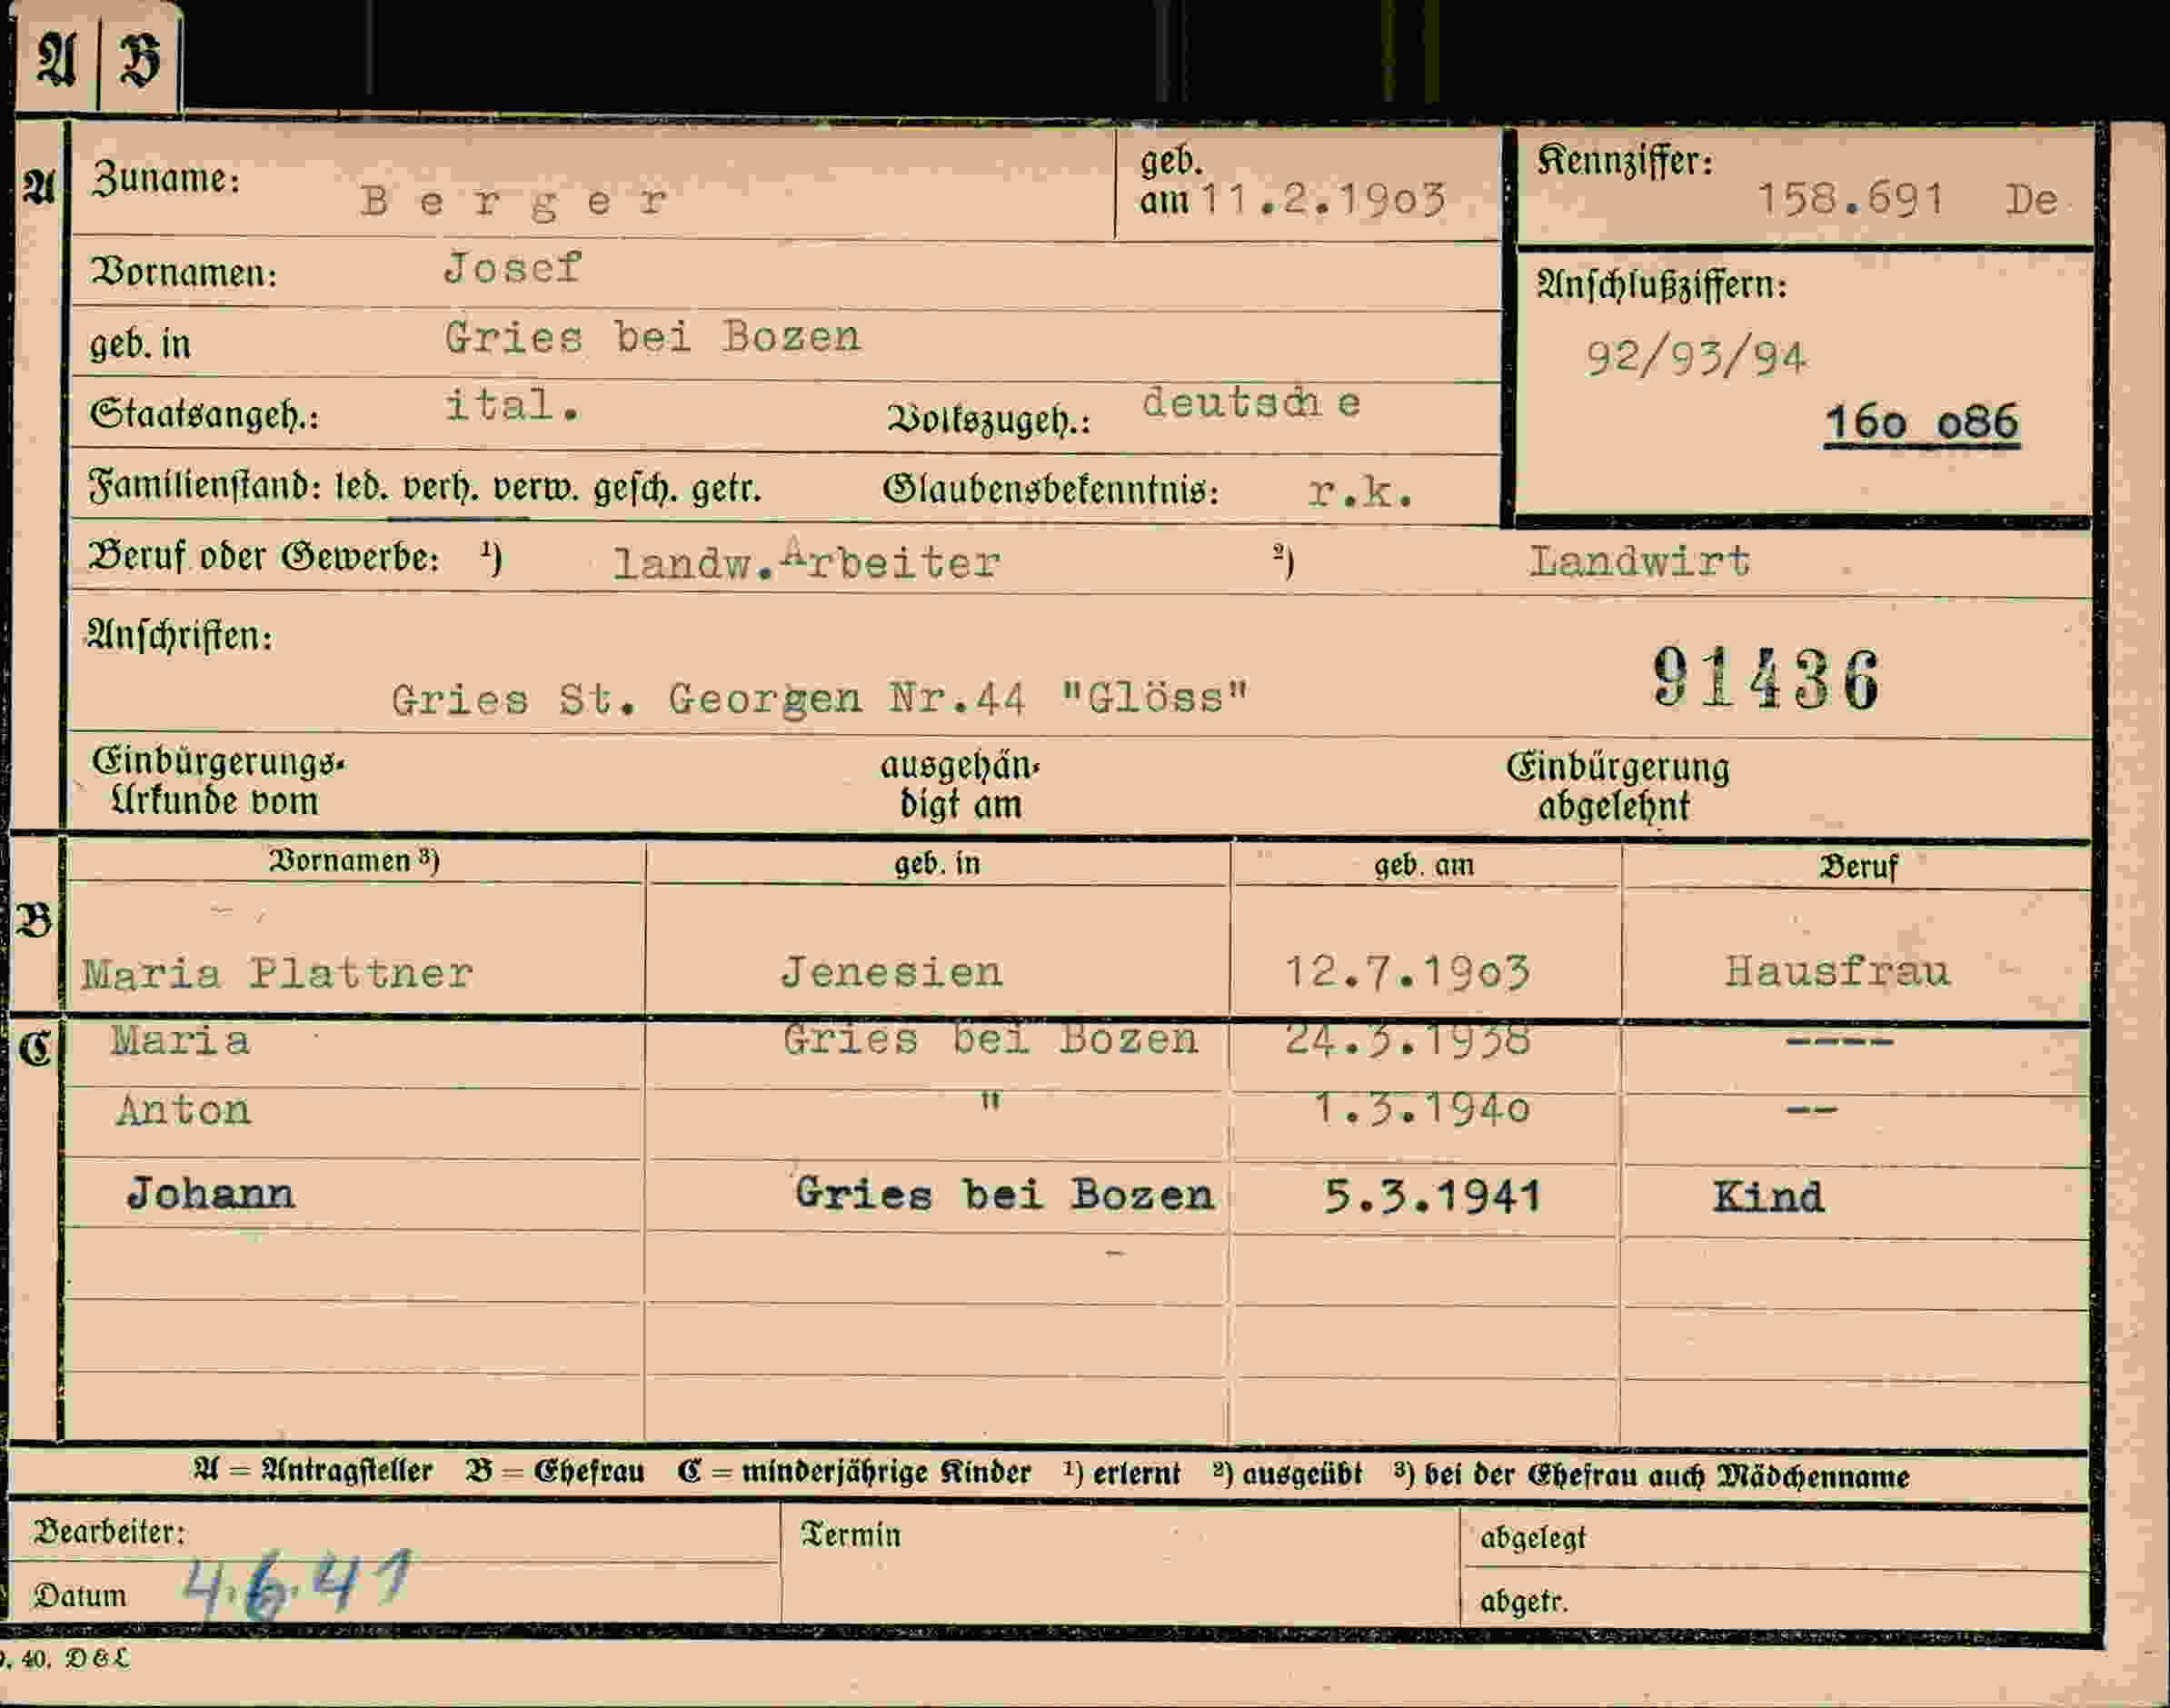 A B
A Zuname: Berger geb. am 11.2.19o3 Kennziffer: 158.691 De
Vornamen: Josef
Anschlußziffern:
geb. in Gries bei Bozen
92/93/94
Staatsangeh.: ital. Volkszugeh.: deutsche
16o o86
Familienstand: led. verh. verw. gesch. getr. Glaubensbekenntnis: r.k.
Beruf oder Gewerbe: ¹) landw.Arbeiter ²) Landwirt
Anschriften:
Gries St. Georgen Nr.44 "Glöss" 91436
Einbürgerungs- ausgehän- Einbürgerung
Urkunde vom digt am abgelehnt
Vornamen ³) geb. in geb. am Beruf
B
Maria Plattner Jenesien 12.7.19o3 Hausfrau
C Maria Gries bei Bozen 24.3.1938 ----
Anton " 1.3.194o --
Johann Gries bei Bozen 5.3.1941 Kind
A = Antragsteller B = Ehefrau C = minderjährige Kinder ¹) erlernt ²) ausgeübt ³) bei der Ehefrau auch Mädchenname
Bearbeiter: Termin abgelegt
Datum 4.6.41 abgetr.
40. D & L